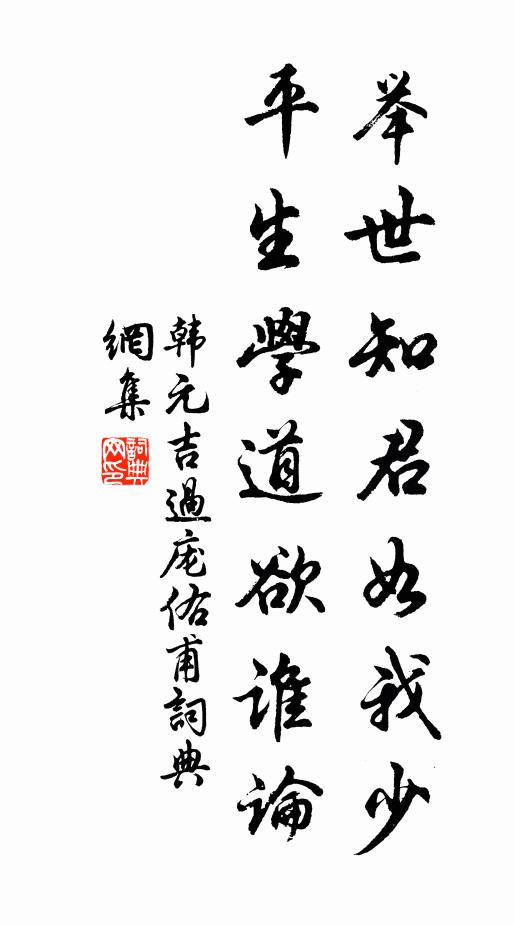 举世知君如我少
平生學道欲谁論
韩元吉過庞佑甫詞典
網集
詞典网印